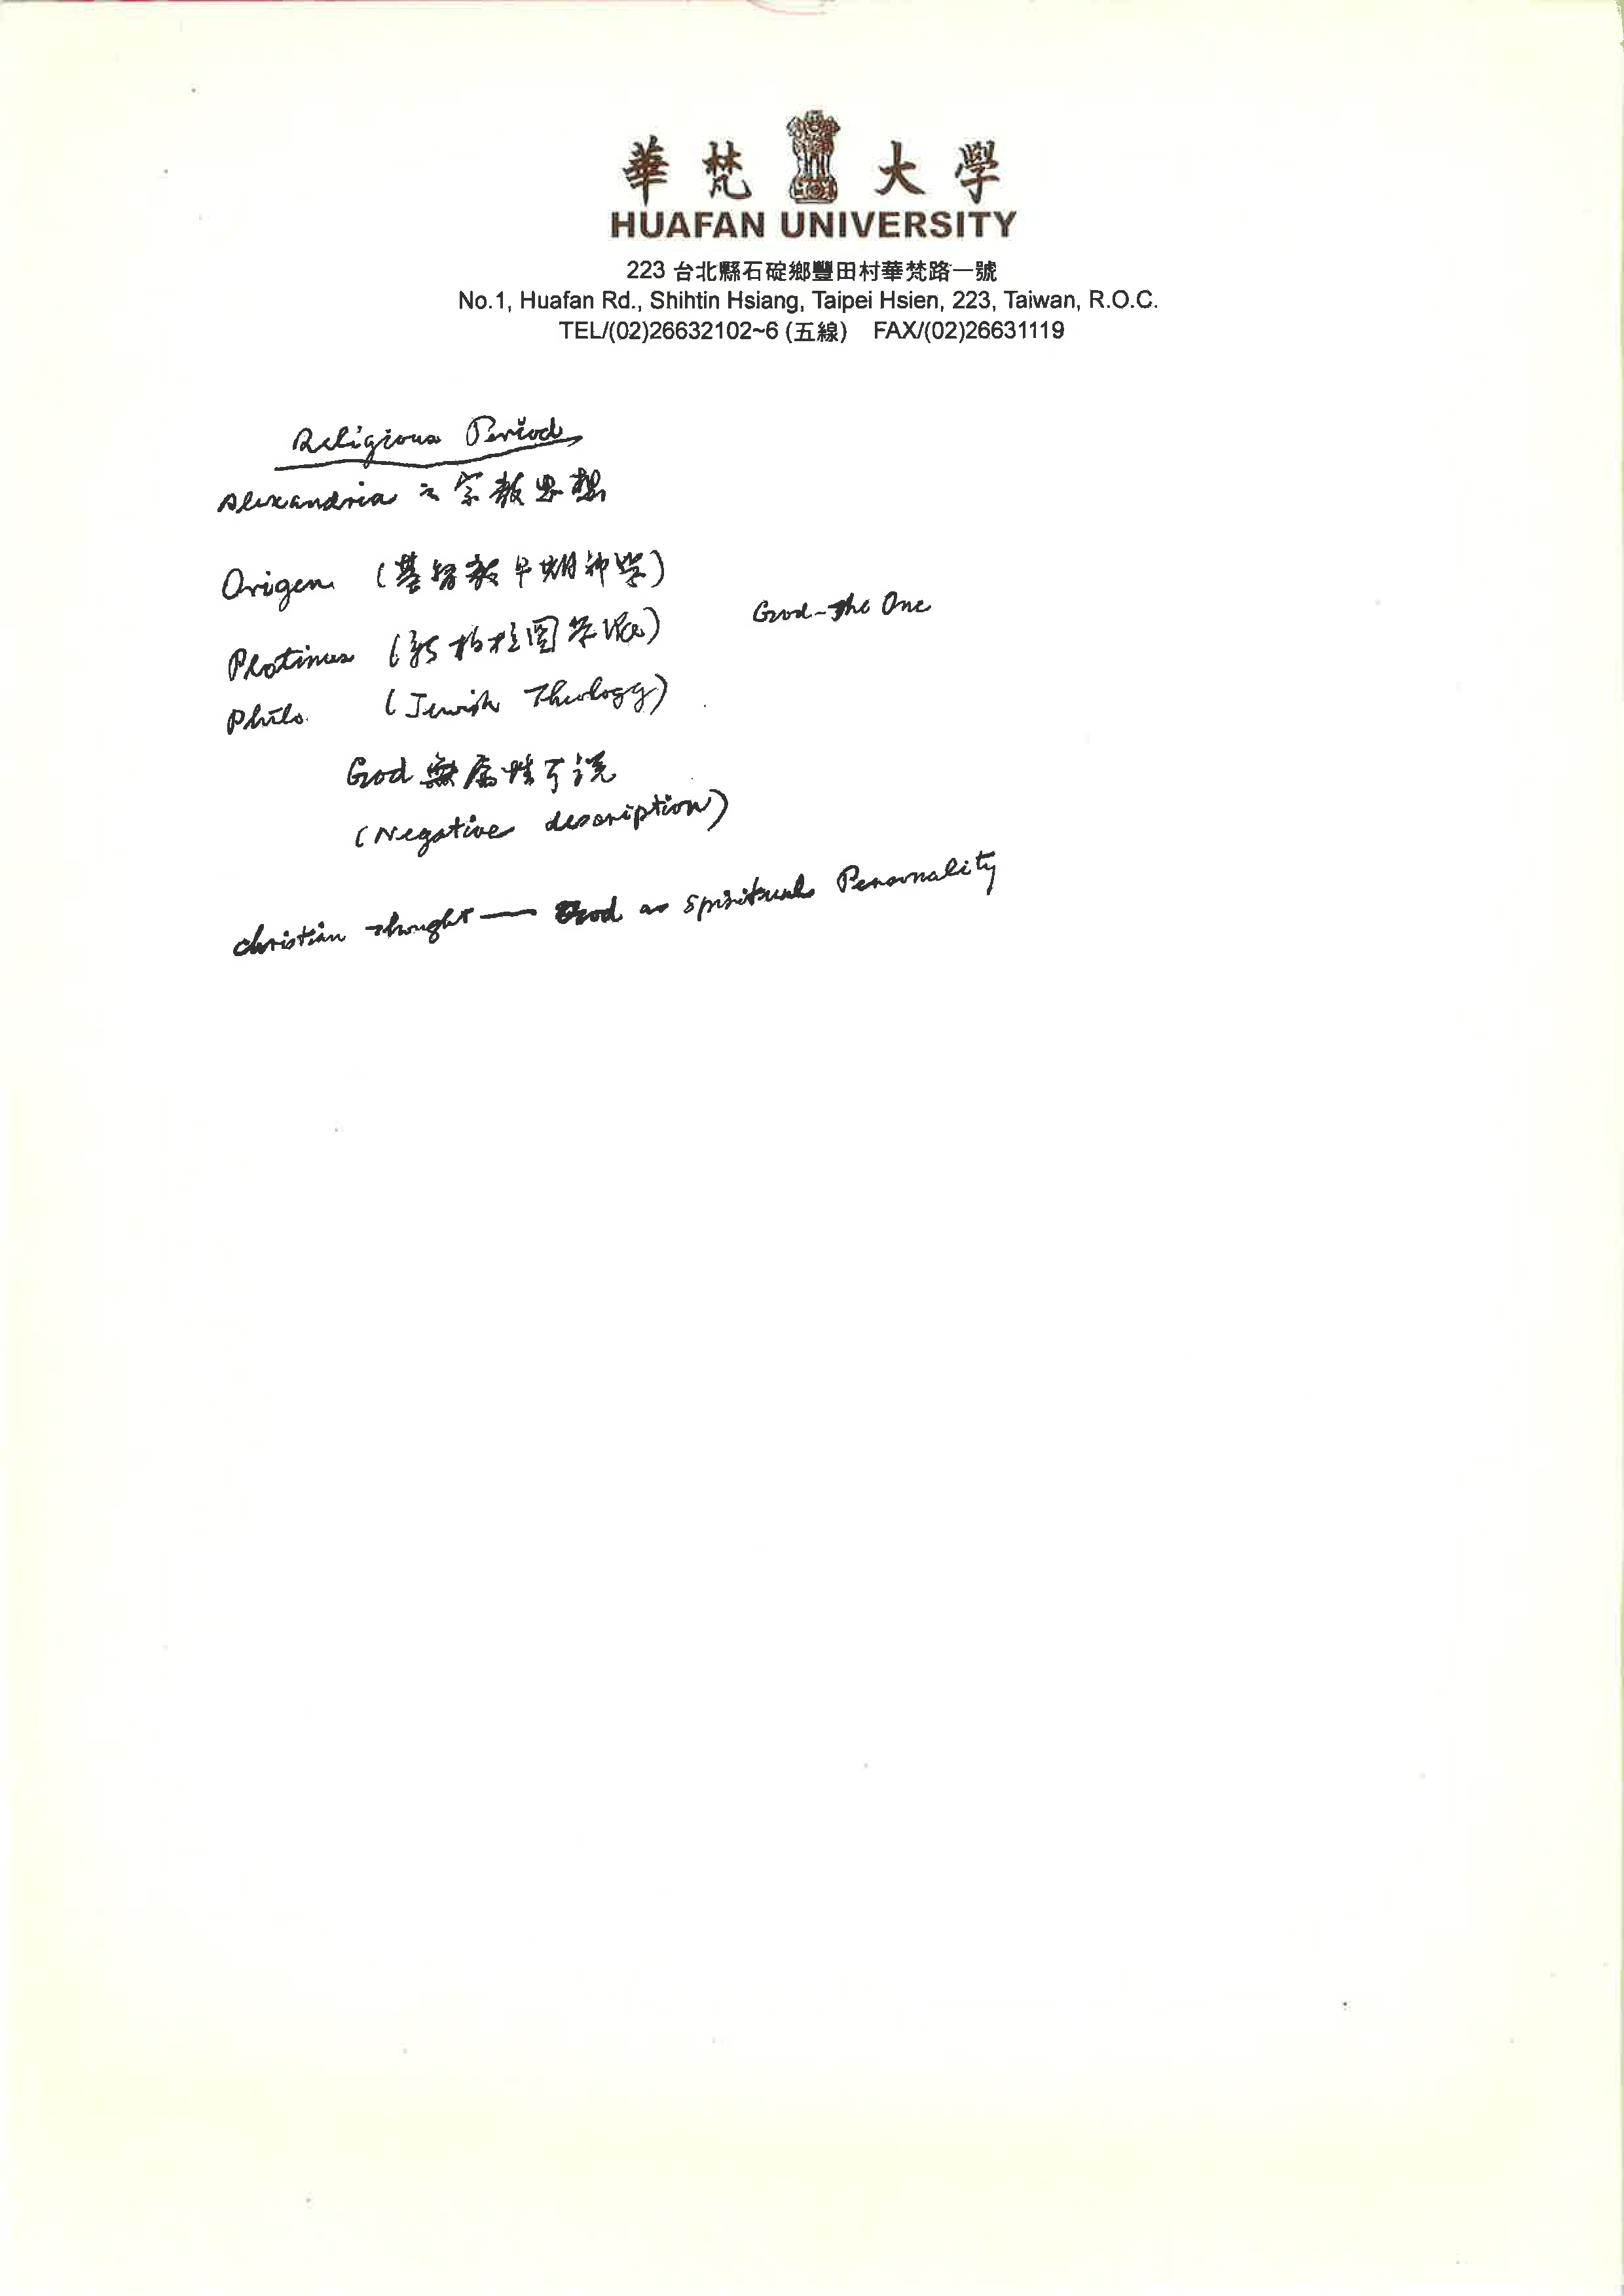 華梵大學
HUAFAN UNIVERSITY
223 台北縣石碇鄉豐田村華梵路一號
No.1, Huafan Rd., Shihtin Hsiang, Taipei Hsien, 223, Taiwan, R.O.C.
TEL/(02)26632102~6 (五線) FAX/(02)26631119
Religious Period
Alexandria 之宗教思想
Origen (基督教早期神学)
Plotinus (新柏拉图学派) God - The One
Philo (Jewish Theology)
God 無屬性可說
(Negative description)
Christian thought — God as Spiritual Personality